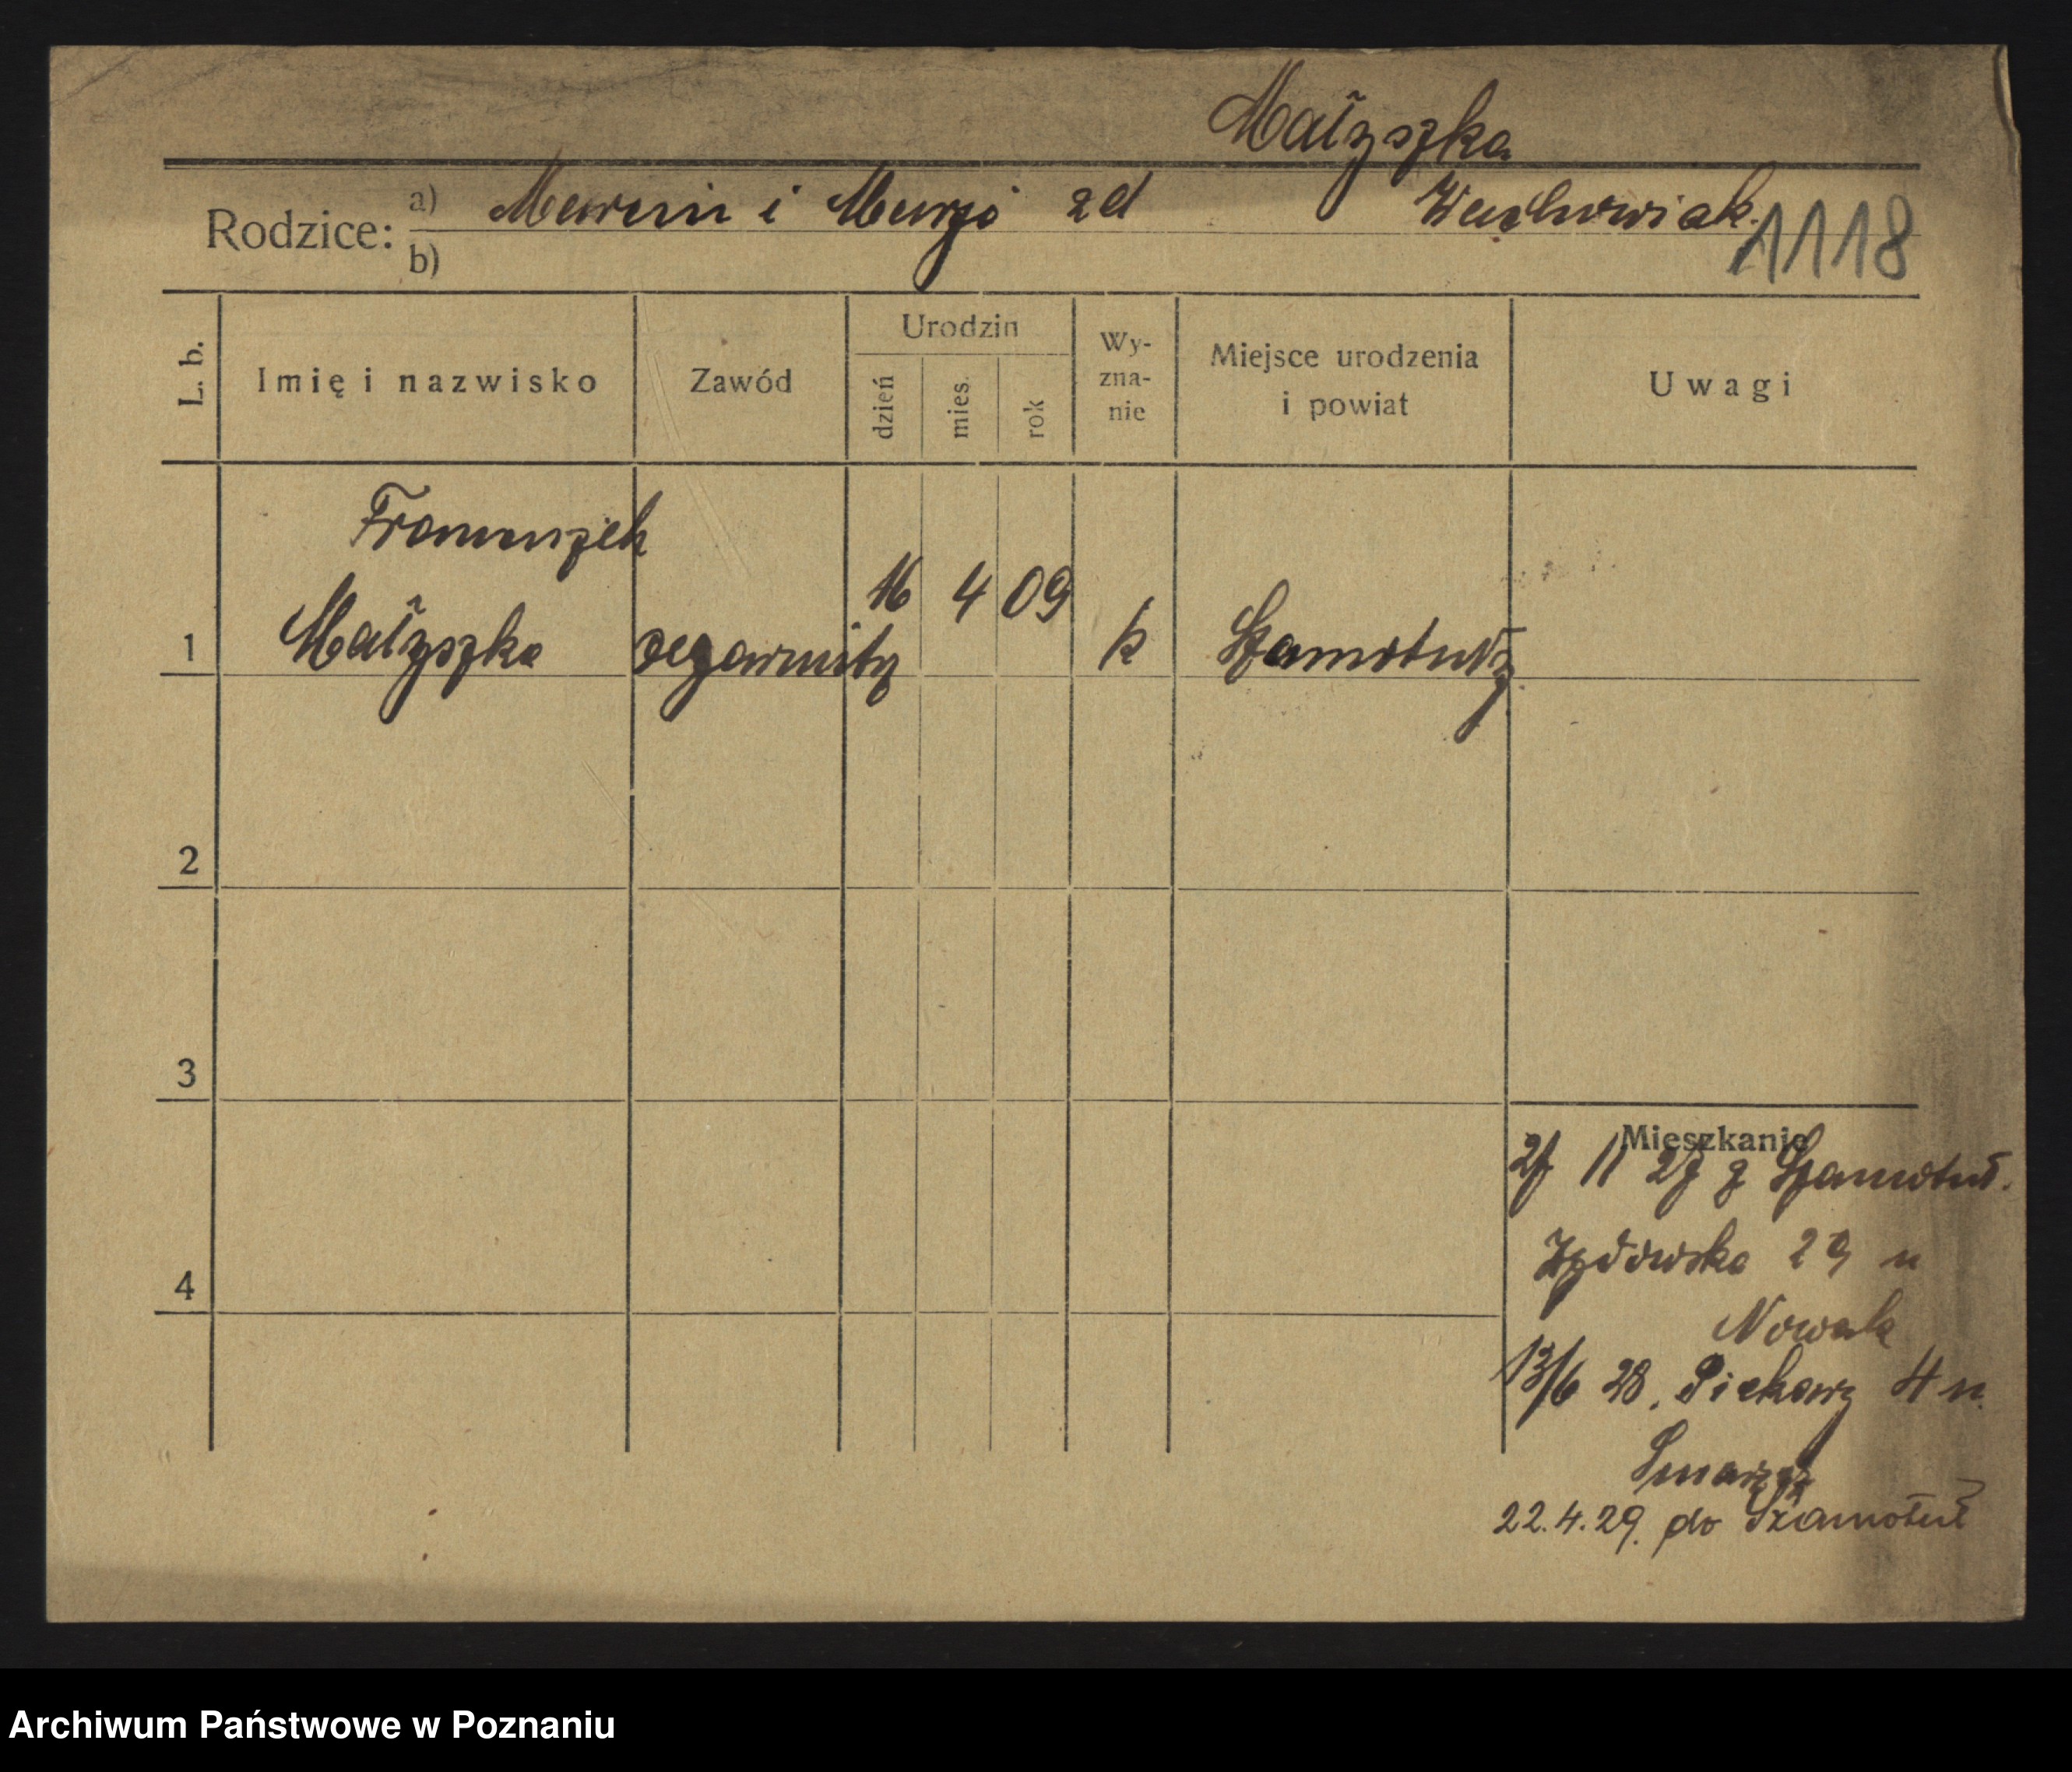 Małyszka
Rodzice: a) Marcin i Marja zd Wachowiak.
1118
b)
L. b. Imię i nazwisko Zawód Urodzin dzień mies. rok Wy-zna-nie Miejsce urodzenia i powiat Uwagi
Franciszek
1 Małyszka zegarmistrz 16 4 09 k Szamotuły
2
3
4
Mieszkanie
11 27 z Szamotuł.
29 u
Nowak
13/6 28. Piekary 4 u.
22.4.29. do Szamotuł
Archiwum Państwowe w Poznaniu